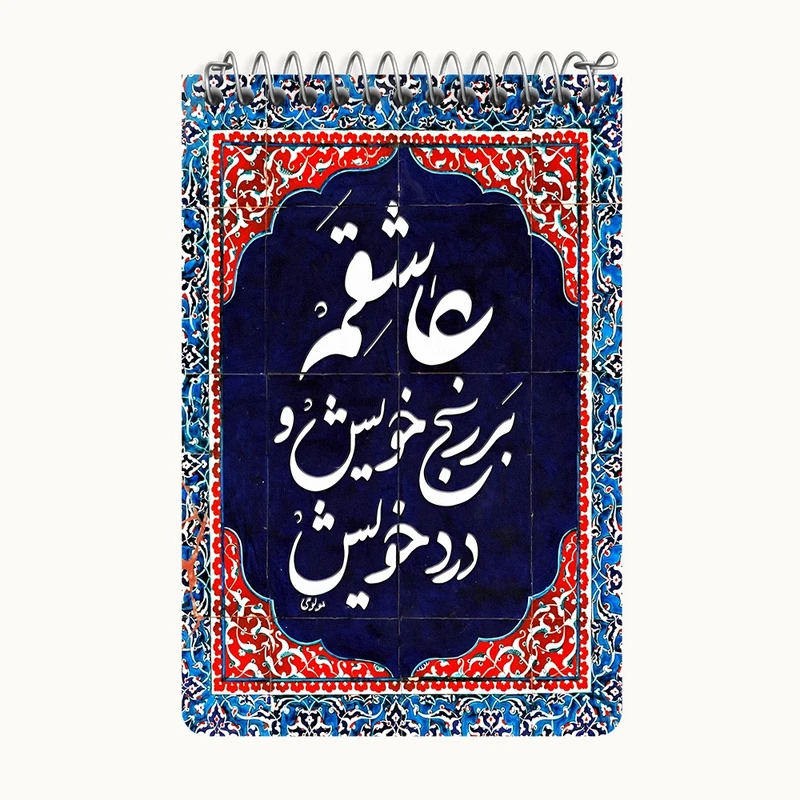 عاشقم
بر رنج خویش و
درد خویش
مولوی